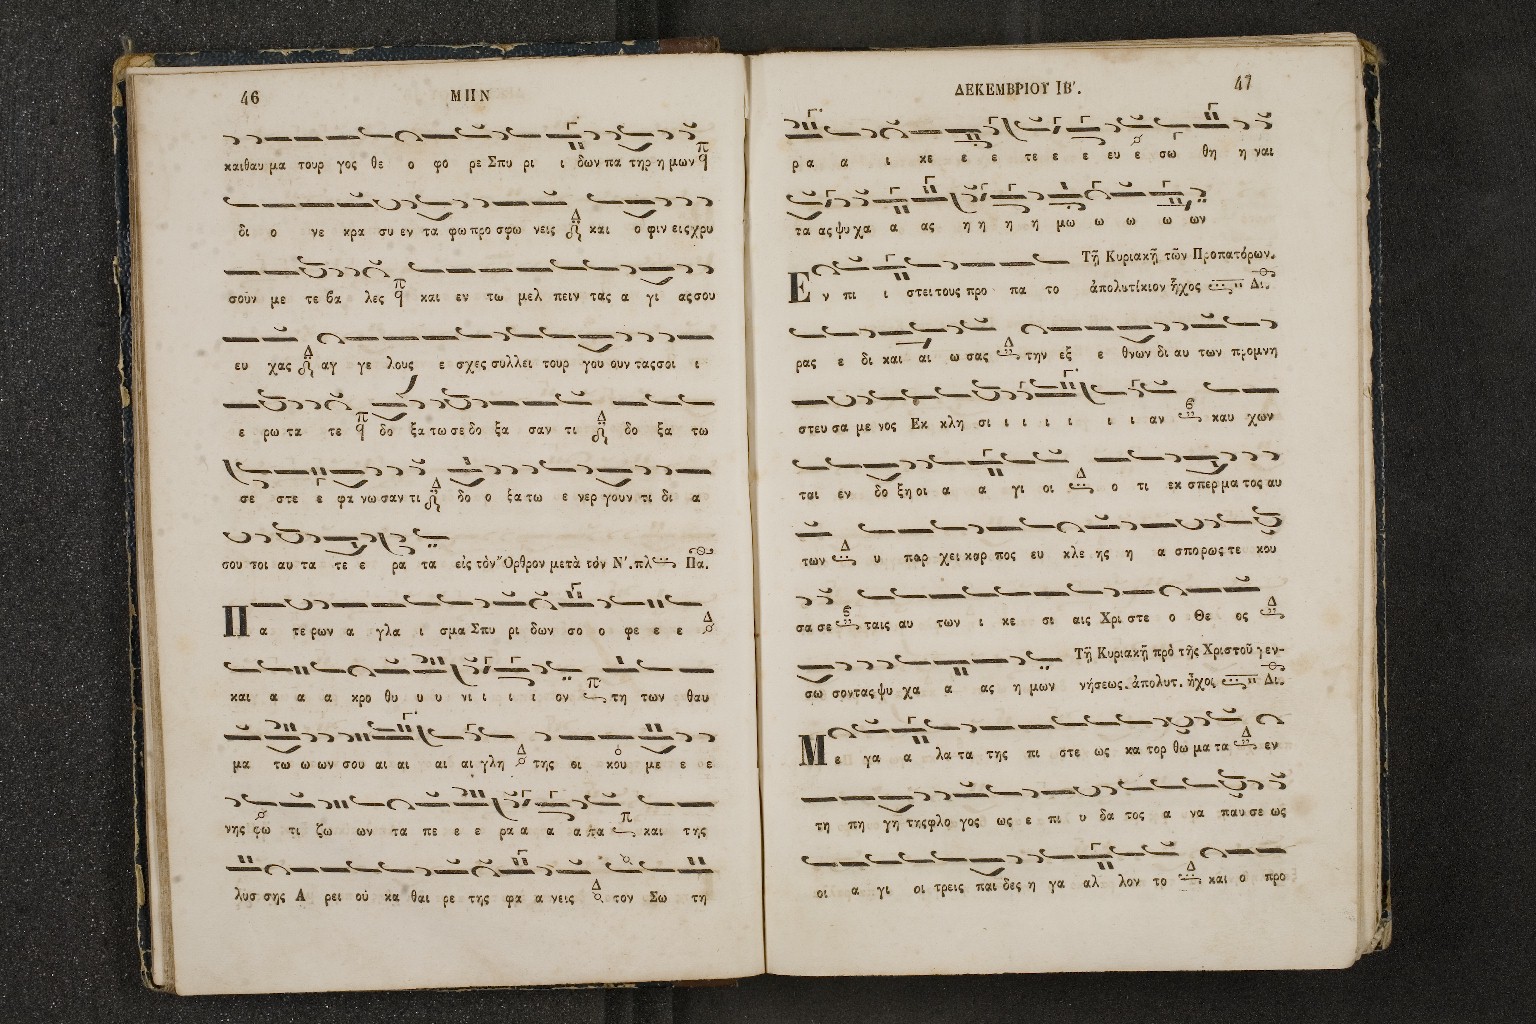 46 ΜΗΝ
και θαυ μα τουρ γος θε ο φο ρε Σπυ ρι ι δων πα τηρ η μων
δι ο νε κρα συ εν τα φω προσ φω νεις και ο φιν εις χρυ
σουν με τε βα λες και εν τω μελ πειν τας α γι ας σου
ευ χας αγ γε λους ε σχες συλ λει τουρ γου ουν τας σοι ι
ε ρω τα τε δο ξα τω σε δο ξα σαν τι δο ξα τω
σε στε ε φα νω σαν τι δο ο ξα τω ε νερ γουν τι δι α
σου τοι αυ τα τε ε ρα τα εἰς τὸν Ὄρθρον μετὰ τὸν Ν΄. πλ Πα.
Πα τε ρων α γλα ι σμα Σπυ ρι δων σο ο φε ε ε
και α α α κρο θυ υ υ νι ι ι ι ον τη των θαυ
μα τω ω ων σου αι αι αι αι γλη της οι κου με ε ε
νης φω τι ζω ων τα πε ε ε ρα α α α τα και της
λυσ σης Α ρει ού κα θαι ρε της φα α νεις τον Σω τη
ΔΕΚΕΜΒΡΙΟΥ ΙΒ΄. 47
ρ α α ι κε ε ε τε ε ε ευ ε σω θη η ναι
τα ας ψυ χα α ας η η η η μω ω ω ω ων
Τῇ Κυριακῇ τῶν Προπατόρων.
Εν πι ι στει τους προ πα το ἀπολυτίκιον ἦχος Δι.
ρας ε δι και αι ω σας την εξ ε θνων δι αυ των προ μνη
στευ σα με νος Εκ κλη σι ι ι ι ι ι αν καυ χων
ται εν δο ξη οι α α γι οι ο τι εκ σπερ μα τος αυ
των υ παρ χει καρ πος ευ κλε ης η α σπο ρως τε κου
σα σε ταις αυ των ι κε σι αις Χρι στε ο Θε ος
Τῇ Κυριακῇ πρὸ τῆς Χριστοῦ γεν-
σω σον τας ψυ χα α ας η μων νήσεως. ἀπολυτ. ἦχος Δι.
Με γα α λα τα της πι στε ως κα τορ θω μα τα εν
τη πη γη της φλο γος ως ε πι υ δα τος α να παυ σε ως
οι α γι οι τρεις παι δες η γα αλ λον το και ο προ